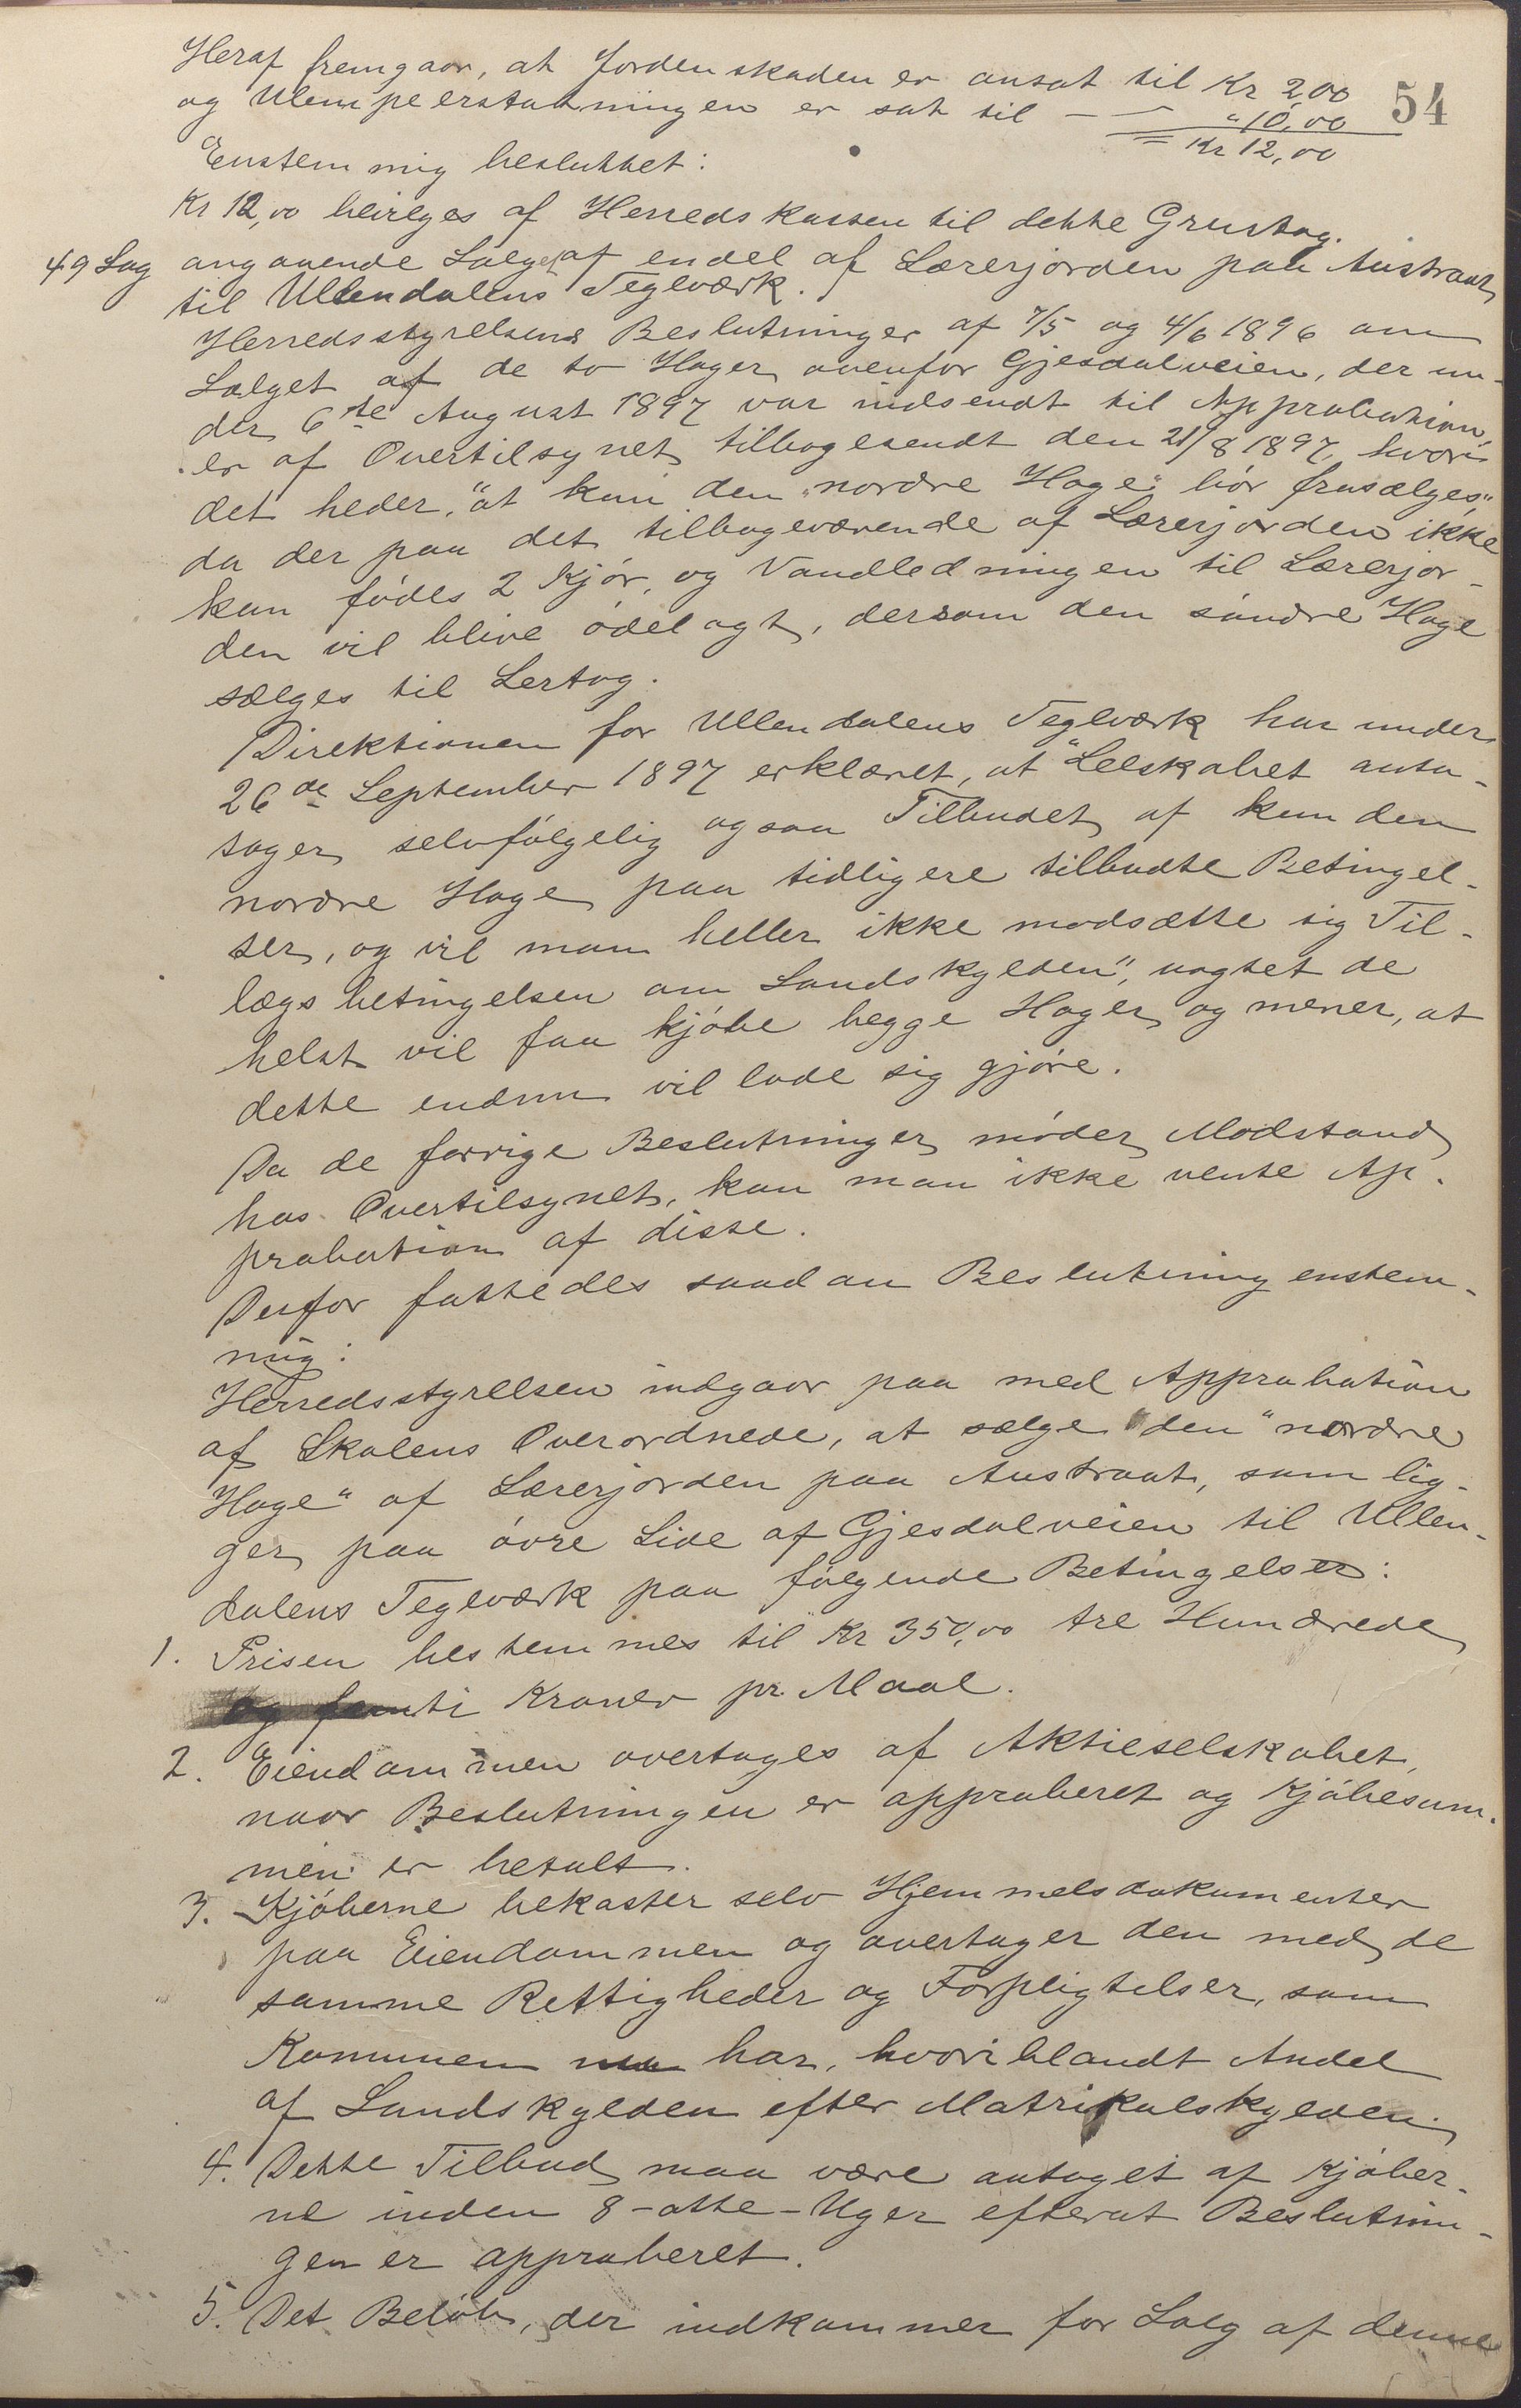 54
Heraf fremgaar, at Jordenskaden er ansat til Kr 2,00
og Ulempeerstatningen er sat til — — " 10,00
= Kr 12,00
Enstemmig besluttet:
Kr 12,00 bevilges af Herredskassen til dette Grustag.
49 Sag angaaende Salget af endel af Lærerjorden paa Austraat
til Ullendalens Teglværk.
Herredsstyrelsens Beslutninger af 7/5 og 4/6 1896 om
Salget af de to Hager ovenfor Gjesdalveien, der un-
der 6te August 1897 var indsendt til Approbation,
er af Overtilsynet tilbagesendt den 21/8 1897, hvori
det heder, "at kun den "nordre Hage" bør frasælges",
da der paa det tilbageværende af Lærerjorden ikke
kan fødes 2 Kjør, og Vandledningen til Lærerjor-
den vil blive ødelagt, dersom den søndre Hage
sælges til Lertag.
Direktionen for Ullendalens Teglværk har under
26de September 1897 erklæret, at "Selskabet anta-
tager selvfølgelig ogsaa Tilbudet af kun den
nordre Hage paa tidligere tilbudte Betingel-
ser, og vil man heller ikke modsætte sig Til-
lægsbetingelsen om Landskylden", uagtet de
helst vil faa kjøbe begge Hager og mener, at
dette endnu vil lade sig gjøre.
Da de forrige Beslutninger møder Modstand
hos Overtilsynet, kan man ikke vente Ap-
probation af disse.
Derfor fattedes saadan Beslutning enstem-
mig:
Herredsstyrelsen indgaar paa med Approbation
af Skolens Overordnede, at sælge den "nordre
Hage" af Lærerjorden paa Austraat, som lig-
ger paa øvre Side af Gjesdalveien til Ullen-
dalens Teglværk paa følgende Betingelser:
1. Prisen bestemmes til Kr 350,00 tre Hundrede
og femti Kroner pr. Maal.
2. Eiendommen overtages af Aktieselskabet,
naar Beslutningen er approberet og Kjøbesum-
men er betalt.
3. Kjøberne bekoster selv Hjemmelsdokumenter
paa Eiendommen og overtager den med de
samme Rettigheder og Forpligtelser, som
Kommunen nu har, hvoriblandt Andel
af Landskylden efter Matrikulskylden.
4. Dette Tilbud maa være antaget af Kjøber-
ne inden 8-otte-Uger efterat Beslutnin-
gen er approberet.
5. Det Beløb, der indkommer for Salg af denne